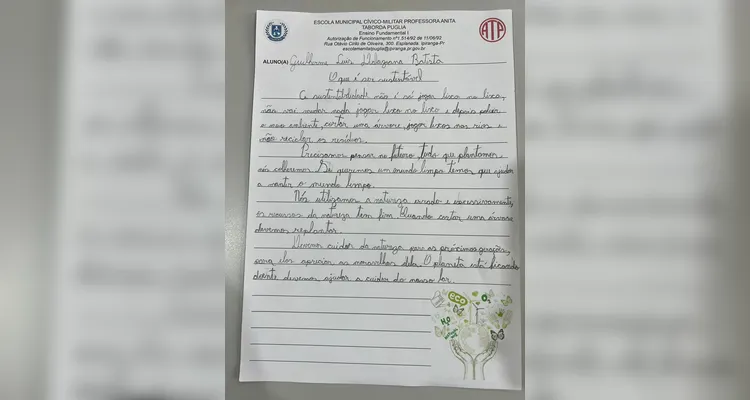 ESCOLA MUNICIPAL CÍVICO-MILITAR PROFESSORA ANITA
TABORDA PUGLIA
Ensino Fundamental I
Autorização de Funcionamento nº1.514/92 de 11/06/92
Rua Otávio Cirilo de Oliveira, 300. Esplanada. Ipiranga-Pr
escolamunitaipuglia@ipiranga.pr.gov.br
ATP
ALUNO(A) Guilherme Luis Batista
O que é ser sustentável
A sustentabilidade não é só jogar lixo no lixo,
não vai mudar nada jogar lixo no lixo e depois poluir
o meio ambiente, cortar uma árvore, jogar lixos nos rios e
não reciclar os resíduos.
Precisamos pensar no futuro tudo que plantamos,
nós colheremos. Se queremos um mundo limpo temos que ajudar
a manter o mundo limpo.
Nós utilizamos a natureza excessivamente,
os recursos da natureza tem fim. Quando cortar uma árvore
devemos replantar.
Devemos cuidar da natureza para as próximas gerações,
para eles apreciar as maravilhas dela. O planeta está ficando
doente, devemos ajudar a cuidar do nosso lar.
eco
O₂
H₂O